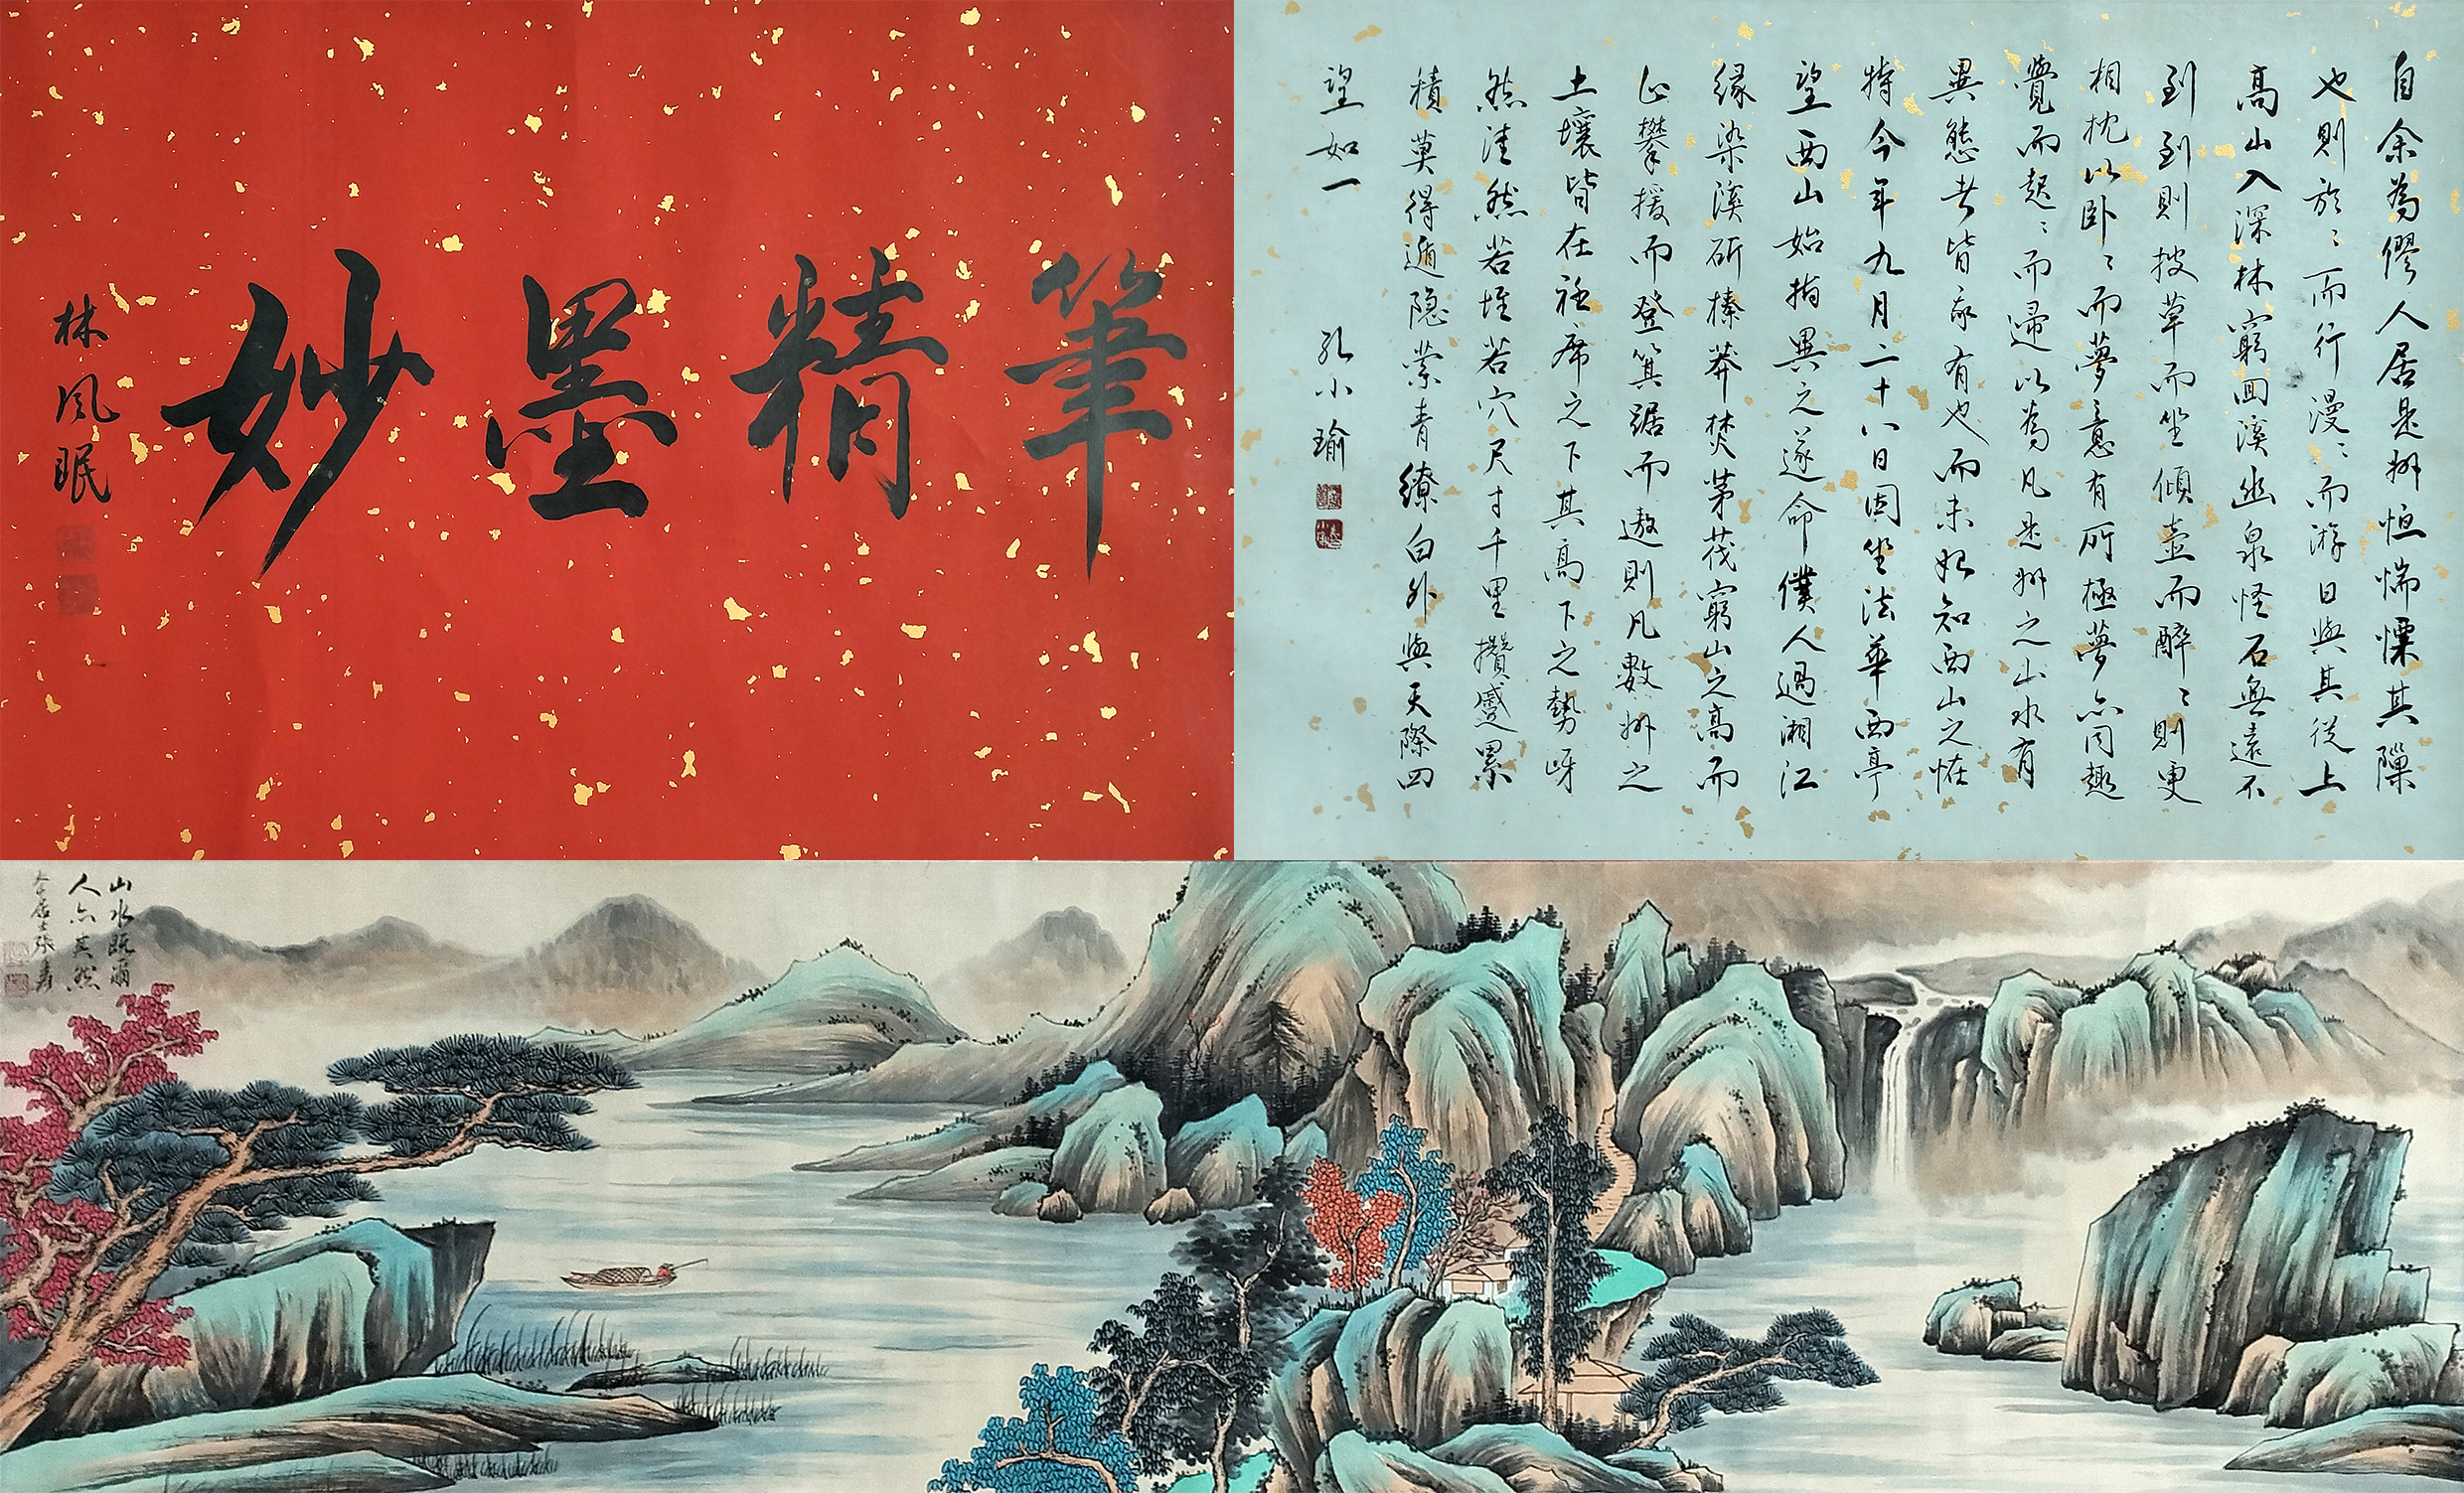 筆精墨妙
林風眠
自余為僇人居是州恒惴慄其隟
也則於〻而行漫〻而游日與其從上
高山入深林窮回溪幽泉怪石無遠不
到到則披草而坐傾壺而醉〻則更
相枕以卧〻而夢意有所極夢亦同趣
覺而起〻而歸以為凡是州之山水有
異態者皆我有也而未始知西山之怪
特今年九月二十八日因坐法華西亭
望西山始指異之遂命僕人過湘江
緣染溪斫榛莽焚茅茷窮山之高而
止攀援而登箕踞而遨則凡數州之
土壤皆在衽席之下其高下之勢岈
然洼然若垤若穴尺寸千里攢蹙累
積莫得遁隱縈青繚白外與天際四
望如一
孔小瑜
山水既爾
人亦其然
大千居士張爰